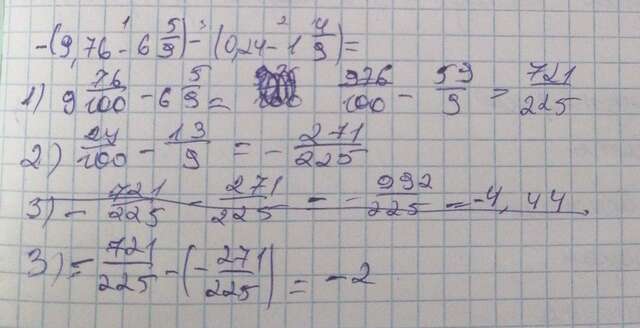 1 3 2
-(9,76 - 6 5/9) - (0,24 - 1 4/9) =
1) 9 76/100 - 6 5/9 = 976/100 - 59/9 = 721/225
2) 24/100 - 13/9 = - 271/225
3) - 721/225 - 271/225 = - 992/225 = -4,44
3) = - 721/225 - (- 271/225) = -2